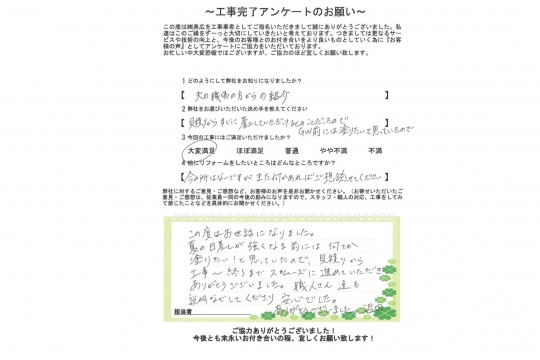 ～工事完了アンケートのお願い～
この度は㈱美広を工事業者としてご指名いただきまして誠にありがとうございました。私
達はこのご縁をずーっと大切にしていきたいと考えております。つきましては更なるサー
ビスや技術の向上と、今後のお客様とのお付き合いをより良いものとしていく為に『お客
様の声』としてアンケートにご協力をいただいております。
お忙しい中大変恐縮ではございますが、ご協力のほど宜しくお願い致します。
1 どのようにして弊社をお知りになりましたか？
【 夫の職場の方からの紹介 】
2 弊社をお選びいただいた決め手を教えてください
【 見積りからすぐに着工していただけるとのことだったので
GW前には塗りたいと思っていたので 】
3 今回の工事にはご満足いただけましたか？
大変満足 ほぼ満足 普通 やや不満 不満
4 他にリフォームをしたいところはどんなところですか？
【 今の所はないですが また何かあればご相談させてください 】
弊社に対するご意見・ご感想など、お客様の声を是非お聞かせください。（お寄せいただいたご意
見・ご感想は、従業員一同の今後の励みになりますので、スタッフ・職人の対応、工事をしてみ
て感じたことなどを具体的にお聞かせください。）
この度はお世話になりました。
夏の日差しが強くなる前には何とか
塗りたい！と思っていたので、見積りから
工事～終了までスムーズに進めていただき
ありがとうございました。職人さん達も
説明などしてくださり安心でした。
ありがとうございました
担当者
ご協力ありがとうございました！
今後とも末永いお付き合いの程、宜しくお願い致します！